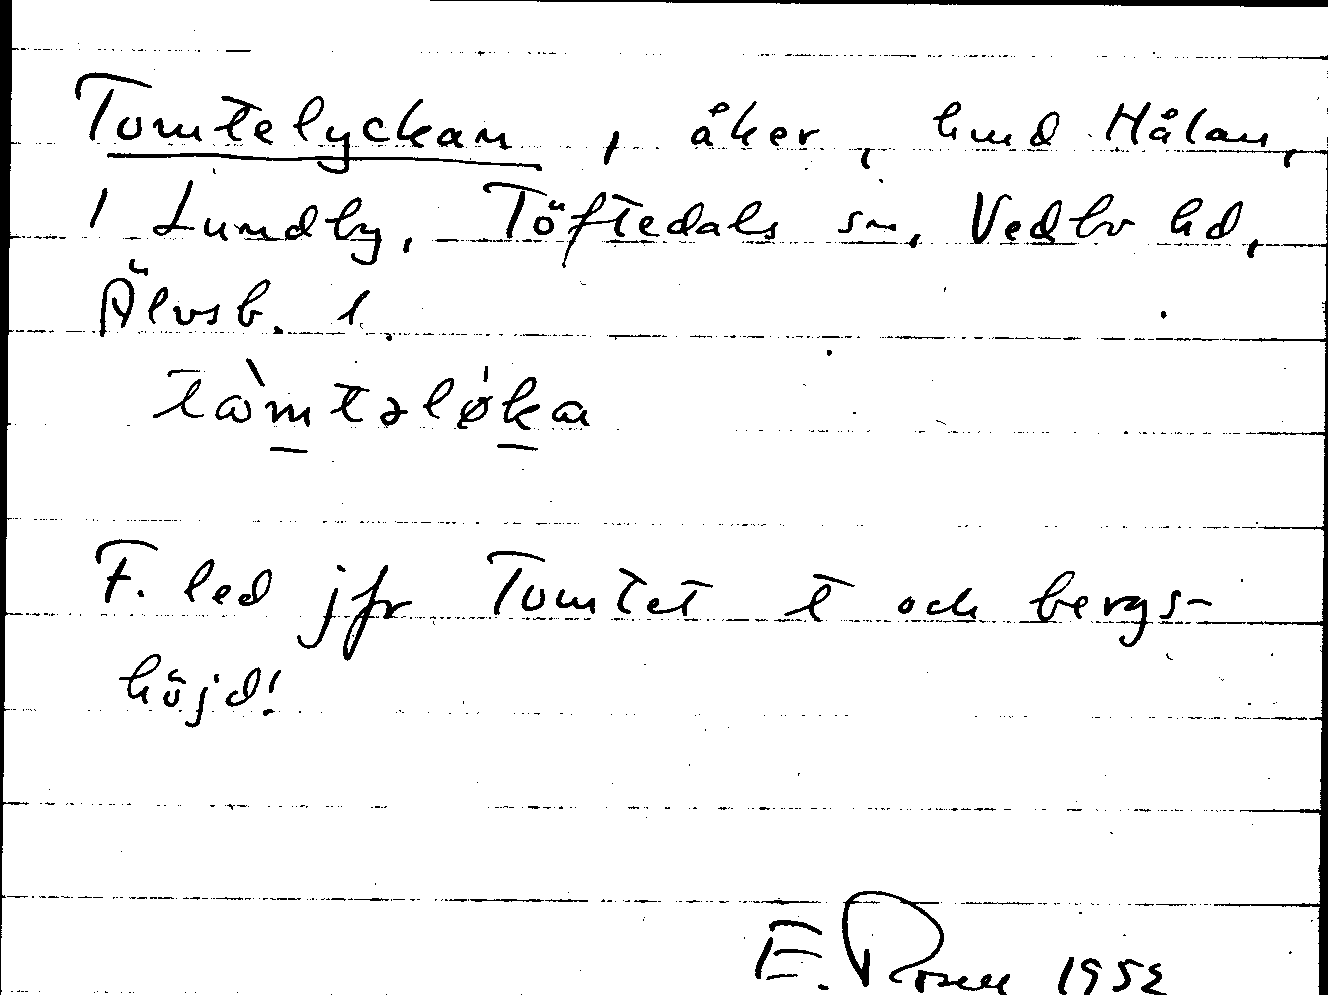 Tomtelyckan, åker, hmd Hålan,
1 Lundby, Töftedals sn, Vedbo hd,
Älvsb. l.
tòmtəlø̍ka
F. led jfr Tomtet t och bergs-
höjd!
E. Rosell 1952